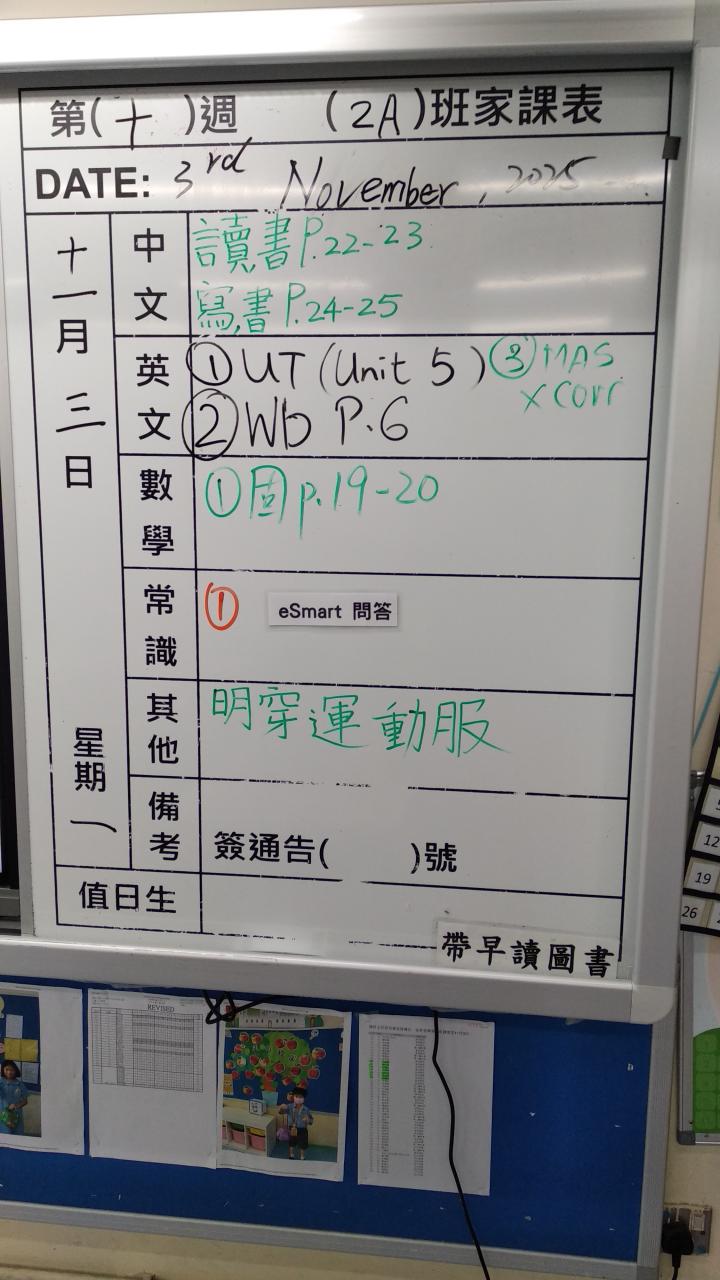 第(十)週 (2A)班家課表
DATE: 3rd November, 2025
十一月三日 星期一
中文
讀書P.22-23
寫書P.24-25
英文
① UT (Unit 5) ③ MAS
x Corr
② Wb P.6
數學
① 固 p.19-20
常識
① eSmart 問答
其他
明穿運動服
備考
簽通告( )號
值日生
帶早讀圖書
12
19
26
REVISED